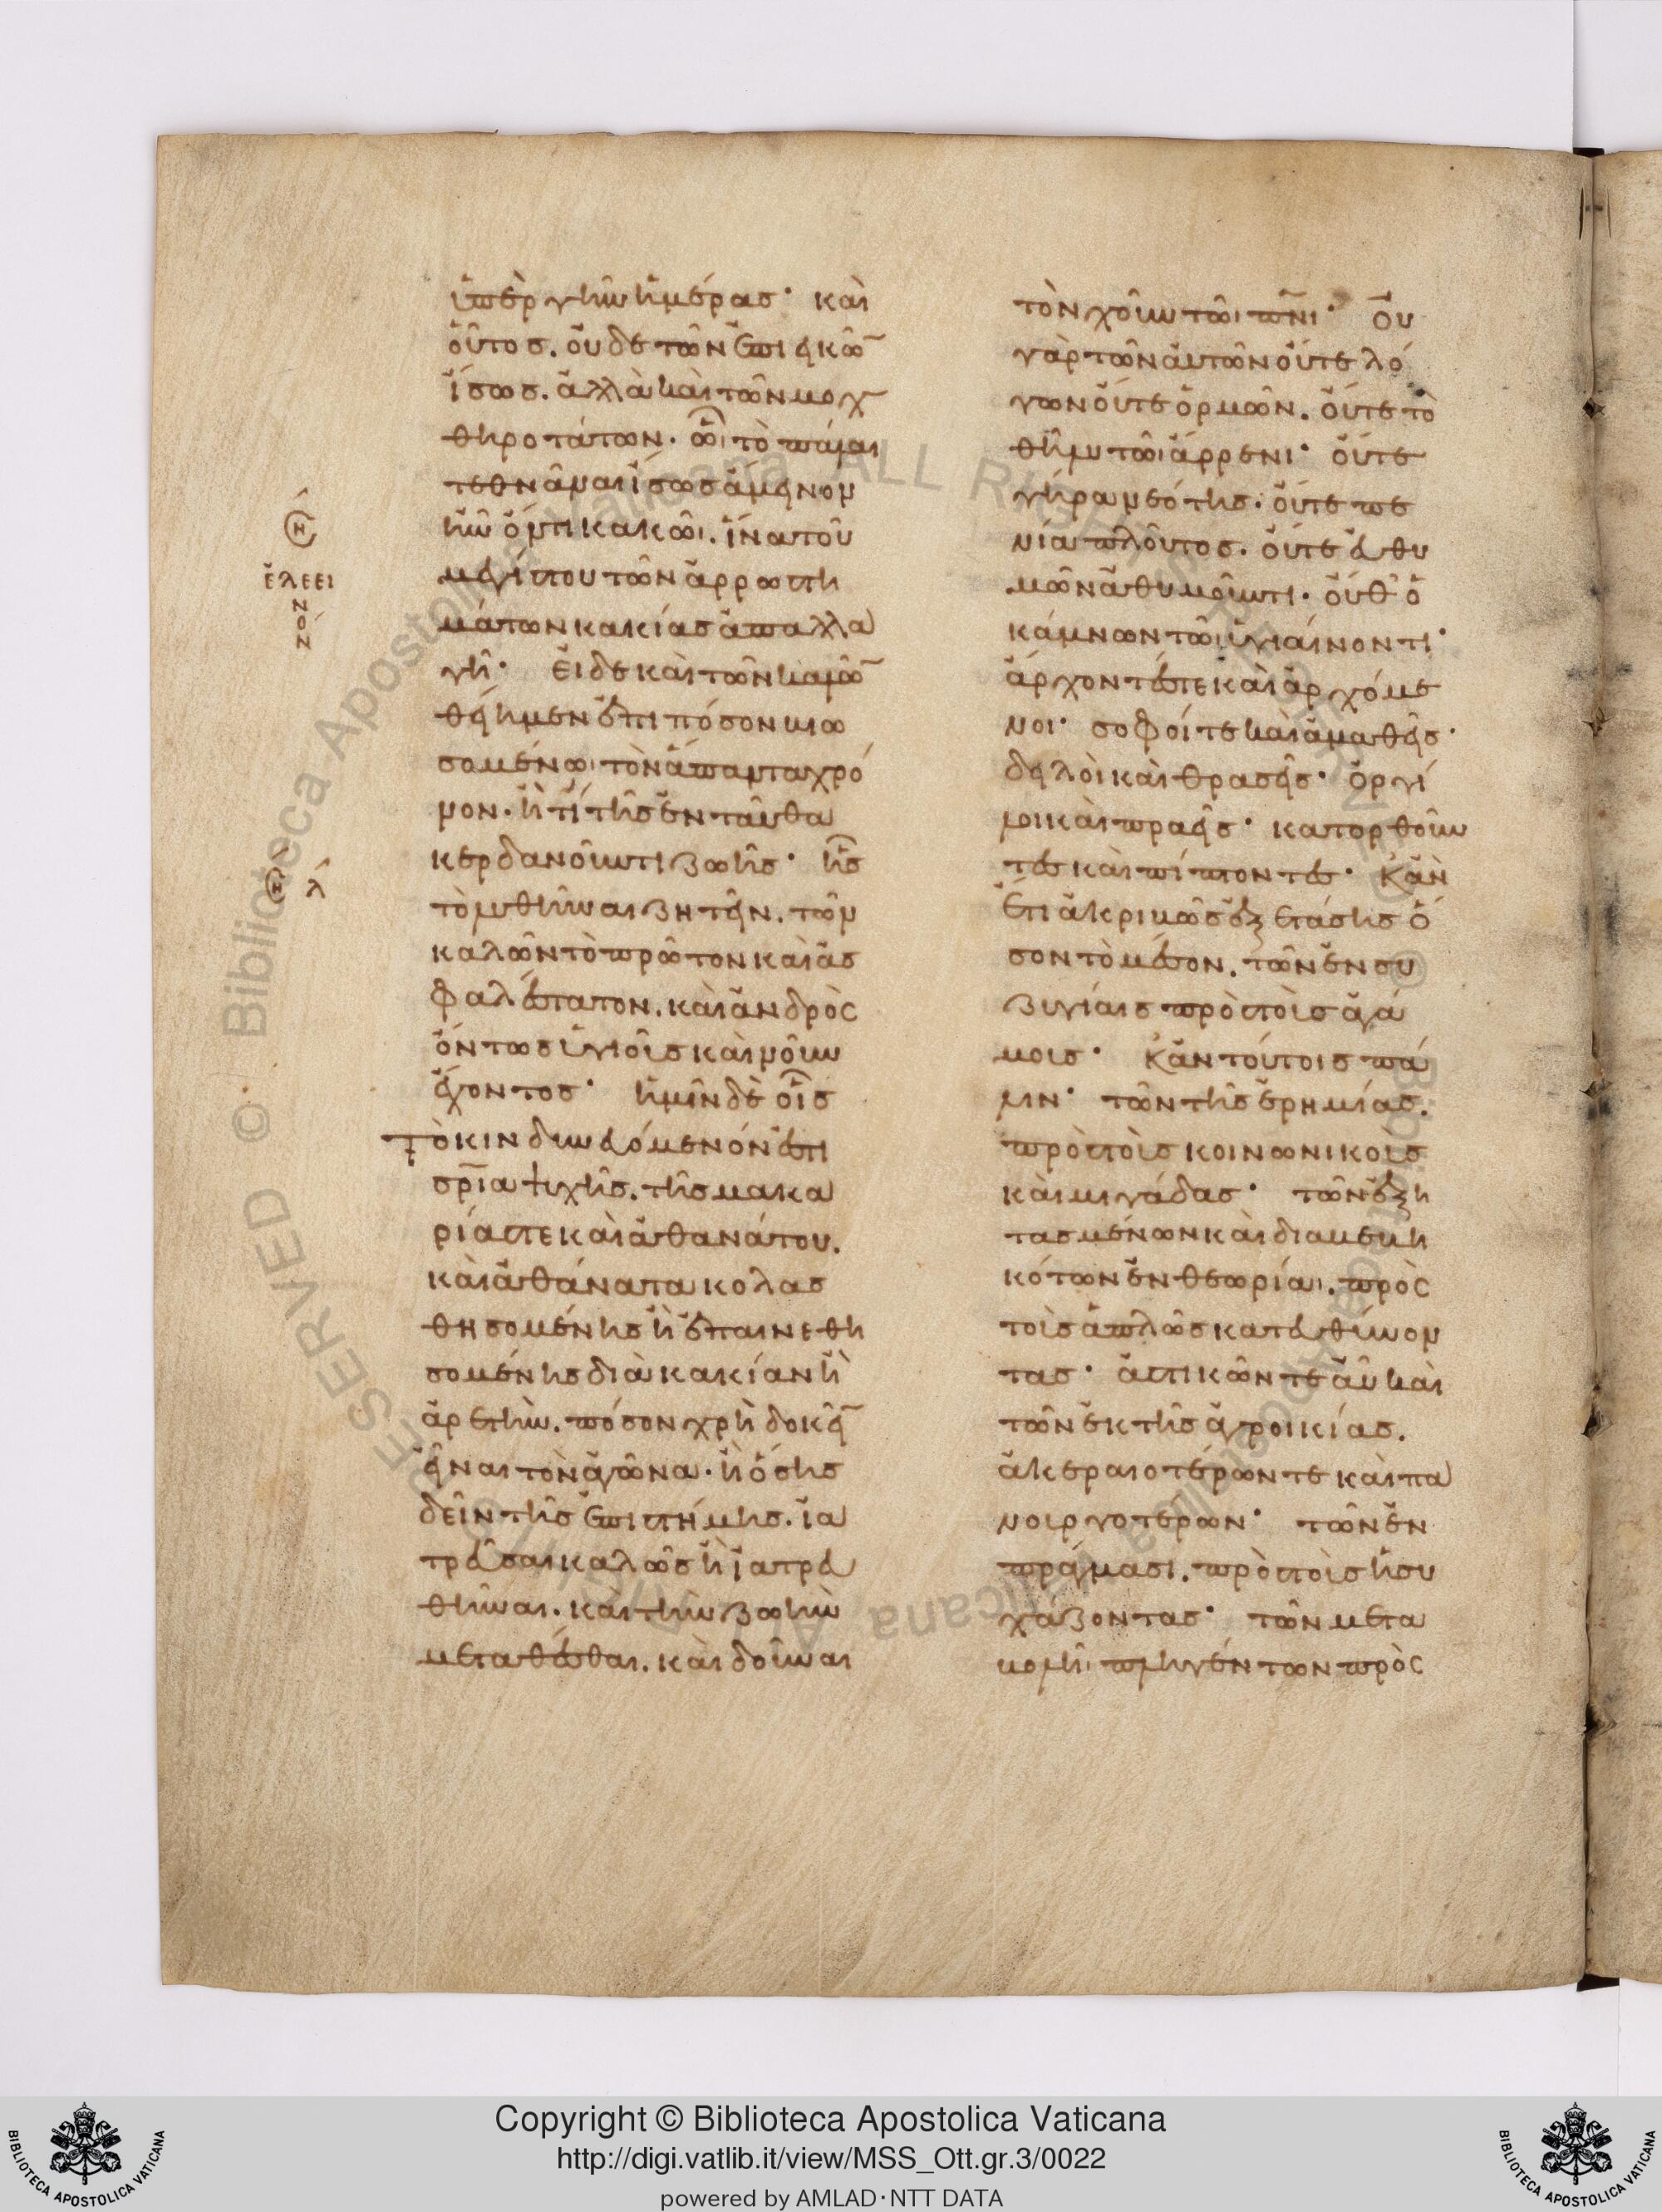 ὑπὲρ γῆν ἡμέρας· καὶ
οὗτος. οὐδε τῶν ἐπιεικῶ̅
ἴσως. ἀλλὰ καὶ τῶν μοχ
θηροτάτων. ὧι τὸ πάλαι
τεθνάναι ἴσως ἄμεινον
ἦν ὄντι κακῶι. ἵνα τοῦ
μεγίστου τῶν ἀρρωστη
μάτων κακίας ἀπαλλα
γῆ· εἰ δε καὶ τῶν καλῶ̅
θείημεν ἐπι πόσον βιω
σομένωι τὸν ἅπαντα χρό
νον. ἢ τί τῆς ἐνταῦθα
κερδανοῦντι ζωῆς· ἧς
τὸ λυθῆναι ζητεῖν. τῶν
καλῶν τὸ πρῶτον καὶ ἀσ
φαλέστατον. καὶ ἀνδρὸς
ὄντως ὑγιοῦς καὶ νοῦν
ἔχοντος· ἡμῖν δὲ οἷς
τὸ κινδυνευόμενόν ἐστι
σρ̅ία ψυχῆς. τῆς μακα
ρίας τε καὶ ἀθανάτου.
καὶ ἀθάνατα κολασ
θησομένης ἢ ἐπαινεθη
σομένης διὰ κακίαν ἢ
ἀρετὴν. πόσον χρὴ δοκεῖ̅
εἶναι τὸν ἀγῶνα. ἢ ὅσης
δεῖν τῆς ἐπιστήμης. ἰα
τρεῦσαι καλῶς ἢ ἰατρευ
θῆναι. καὶ τὴν ζωὴν
μεταθέσθαι. καὶ δοῦναι
ἐλεεινόν
τὸν χοῦν τῶι πν̅ι· οὐ
γὰρ τῶν αὐτῶν οὔτε λό
γων οὔτε ὁρμῶν. οὔτε τὸ
θῆλυ τῶι ἄρρενι· οὔτε
γήρα νεότης. οὔτε πε
νία πλοῦτος. οὔτε εὐθυ
μῶν ἀθυμοῦντι. οὔθ' ὁ
κάμνων τῶι ὑγιαίνοντι·
ἄρχοντές τε καὶ ἀρχόμε
νοι· σοφοί τε καὶ ἀμαθεῖς·
δειλοὶ καὶ θρασεῖς· ὀργί
λοι καὶ πραεῖς· κατορθοῦν
τες καὶ πίπτοντες· κἂν
ἔτι ἀκριβῶς ἐξετάσης ὅ
σον τὸ μέσον. τῶν ἐν συ
ζυγίαις πρὸς τοὺς ἀγά
μους· κἀν τούτοις πά
λιν· τῶν τῆς ἐρημίας.
πρὸς τοὺς κοινωνικοὺς
καὶ μιγάδας· τῶν ἐξη
τασμένων καὶ διαβεβη
κότων ἐν θεωρίαι. πρὸς
τοὺς ἁπλῶς κατευθύνον
τας· ἀστικῶν τε αὖ καὶ
τῶν ἐκ τῆς ἀγροικίας.
ἀκεραιοτέρων τε καὶ πα
νουργοτερων· τῶν ἐν
πράγμασι. πρὸς τοὺς ἡσυ
χάζοντας· τῶν μετα
βολῆι πληγέντων πρὸς
Copyright © Biblioteca Apostolica Vaticana
http://digi.vatlib.it/view/MSS_Ott.gr.3/0022
powered by AMLAD･NTT DATA
BIBLIOTECA APOSTOLICA VATICANA
BIBLIOTECA APOSTOLICA VATICANA